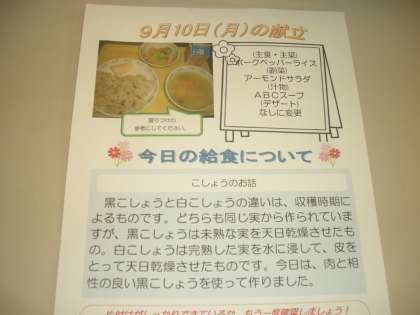 9月10日(月)の献立
(主食・主菜)
ポークペッパーライス
(副菜)
アーモンドサラダ
(汁物)
ABCスープ
(デザート)
なしに変更
盛りつけの
参考にしてください。
今日の給食について
こしょうのお話
黒こしょうと白こしょうの違いは、収穫時期に
よるものです。どちらも同じ実から作られていま
すが、黒こしょうは未熟な実を天日乾燥させたも
の。白こしょうは完熟した実を水に浸して、皮を
とって天日乾燥させたものです。今日は、肉と相
性の良い黒こしょうを使って作りました。
もう一度確認しましょう!